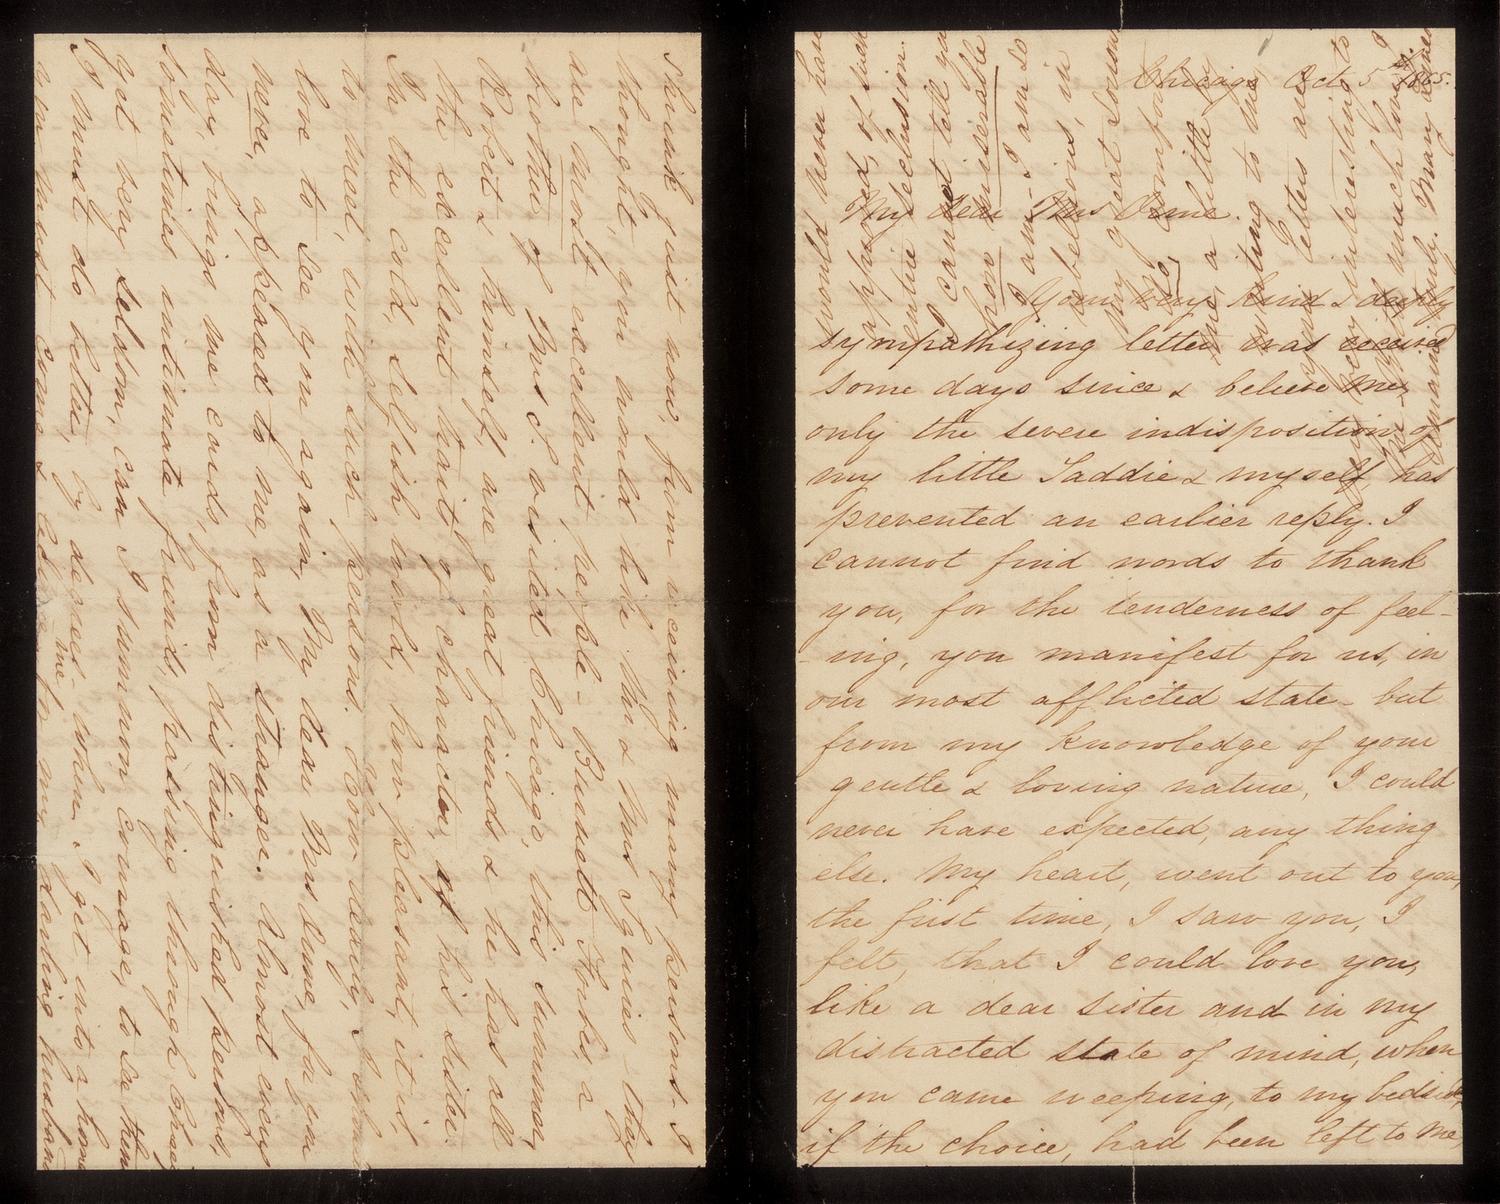 Chicago Oct 5th 1865.
My dear Mrs Orne.
Your very kind & deeply
sympathizing letter was received
some days since & believe me,
only the severe indisposition of
my little Taddie & myself has
prevented an earlier reply. I
cannot find words to thank
you, for the tenderness of feel-
-ing, you manifest for us, in
our most afflicted state - but
from my knowledge of your
gentle & loving nature, I could
never have expected, any thing
else. My heart, went out to you,
the first time, I saw you, I
felt, that I could love you,
like a dear sister and in my
distracted state of mind, when
you came weeping, to my bedside,
if the choice, had been left to me,
shrink just now, from receiving many persons - I
thought, you would like Mr & Mrs - they
are most excellent people - Burnett Forbes, a
brother of Mrs S. visited Chicago, this summer,
Robert & himself, are great friends & he has all
the excellent traits of character, of his sister.
In the cold, selfish world, how pleasant, it is,
to meet, with such persons. How dearly, I would
love to see you again, My dear Mrs Orne, for you
never, appeared to me, as a stranger. Almost every
day, brings me cards, from distinguished persons,
sometimes intimate friends, passing through Chicago
yet very seldom, can I summon courage, to see them
I must do better, by degrees, when I get into a home
you must come & see me, for my darling husband
would never have
approved, of such
entire seclusion.
I cannot tell you
how miserable
I am - I am so
rebellious, in
my great sorrow
comfort
me, a little by
writing to me
your letters are
very interesting to
much love I
remain truly. Mary Lincoln